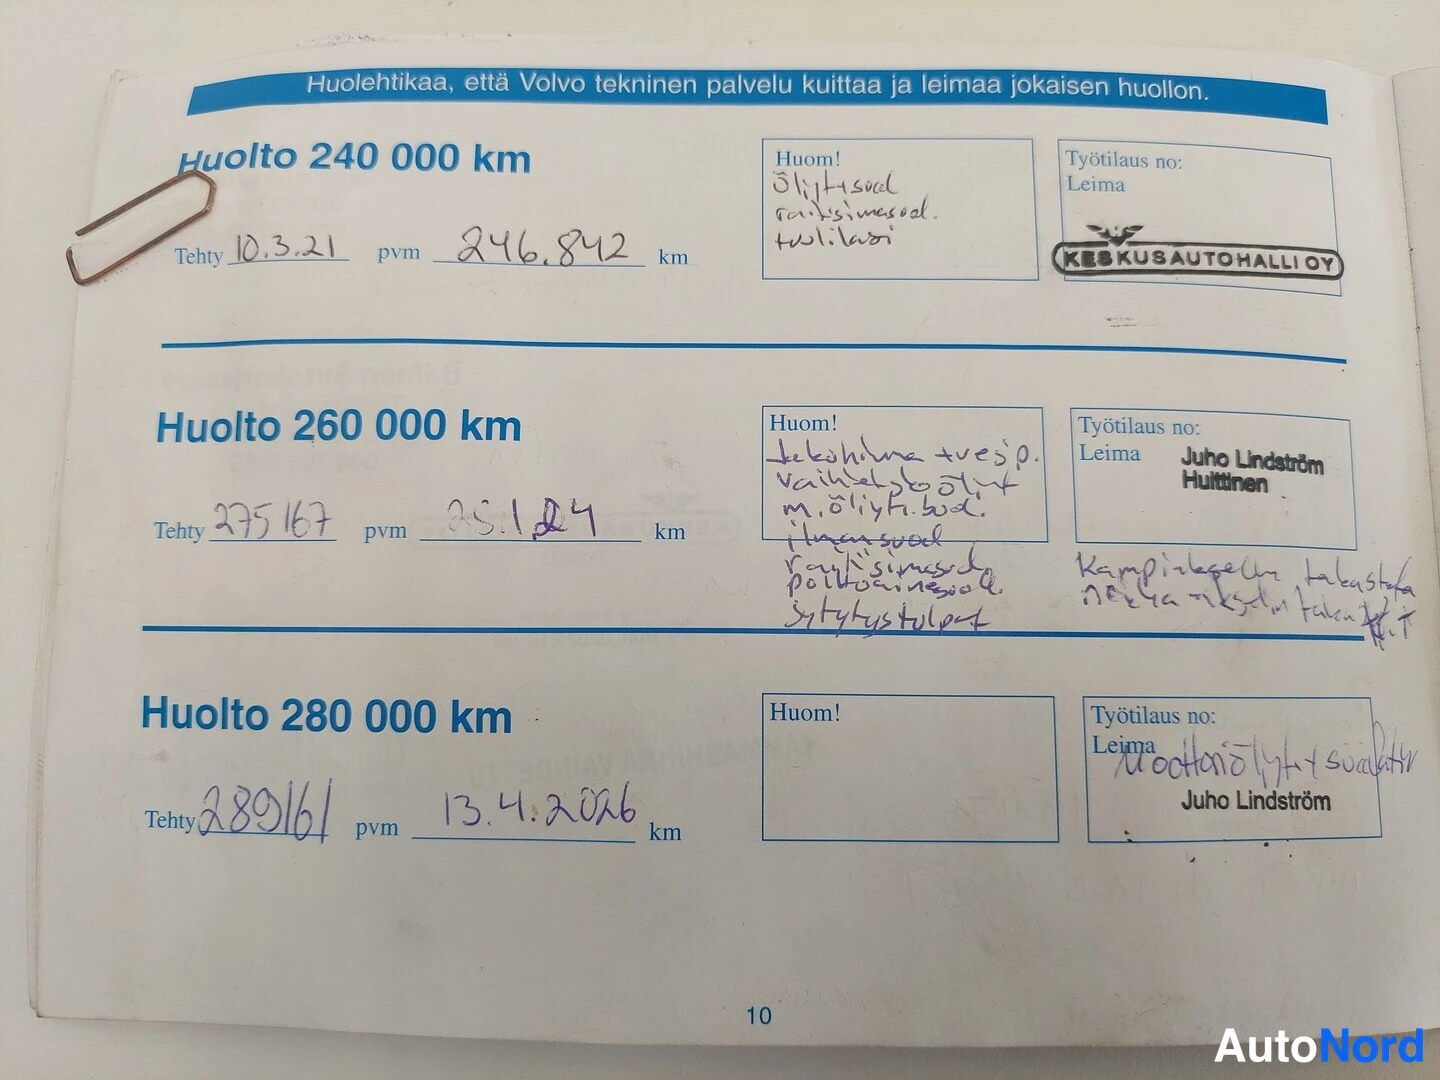 Huolehtikaa, että Volvo tekninen palvelu kuittaa ja leimaa jokaisen huollon.
Huolto 240 000 km
Tehty 10.3.21 pvm 246.842 km
Huom!
öljyt+suod
raitisimasuod.
tuulilasi
Työtilaus no:
Leima
KESKUSAUTOHALLI OY
Huolto 260 000 km
Tehty 275167 pvm 25.1.24 km
Huom!
jakohihna + vesip.
vaihteistoöljyt
m.öljyt.suod.
ilmansuod
raitisimasuod.
polttoainesuod.
sytytystulpat
Työtilaus no:
Leima
Juho Lindström
Huittinen
Kampiakselin takastefa
nokka-akselin taka
Huolto 280 000 km
Tehty 289161 pvm 13.4.2026 km
Huom!
Työtilaus no:
Leima
Moottoriöljyt+suodatin
Juho Lindström
10
AutoNord